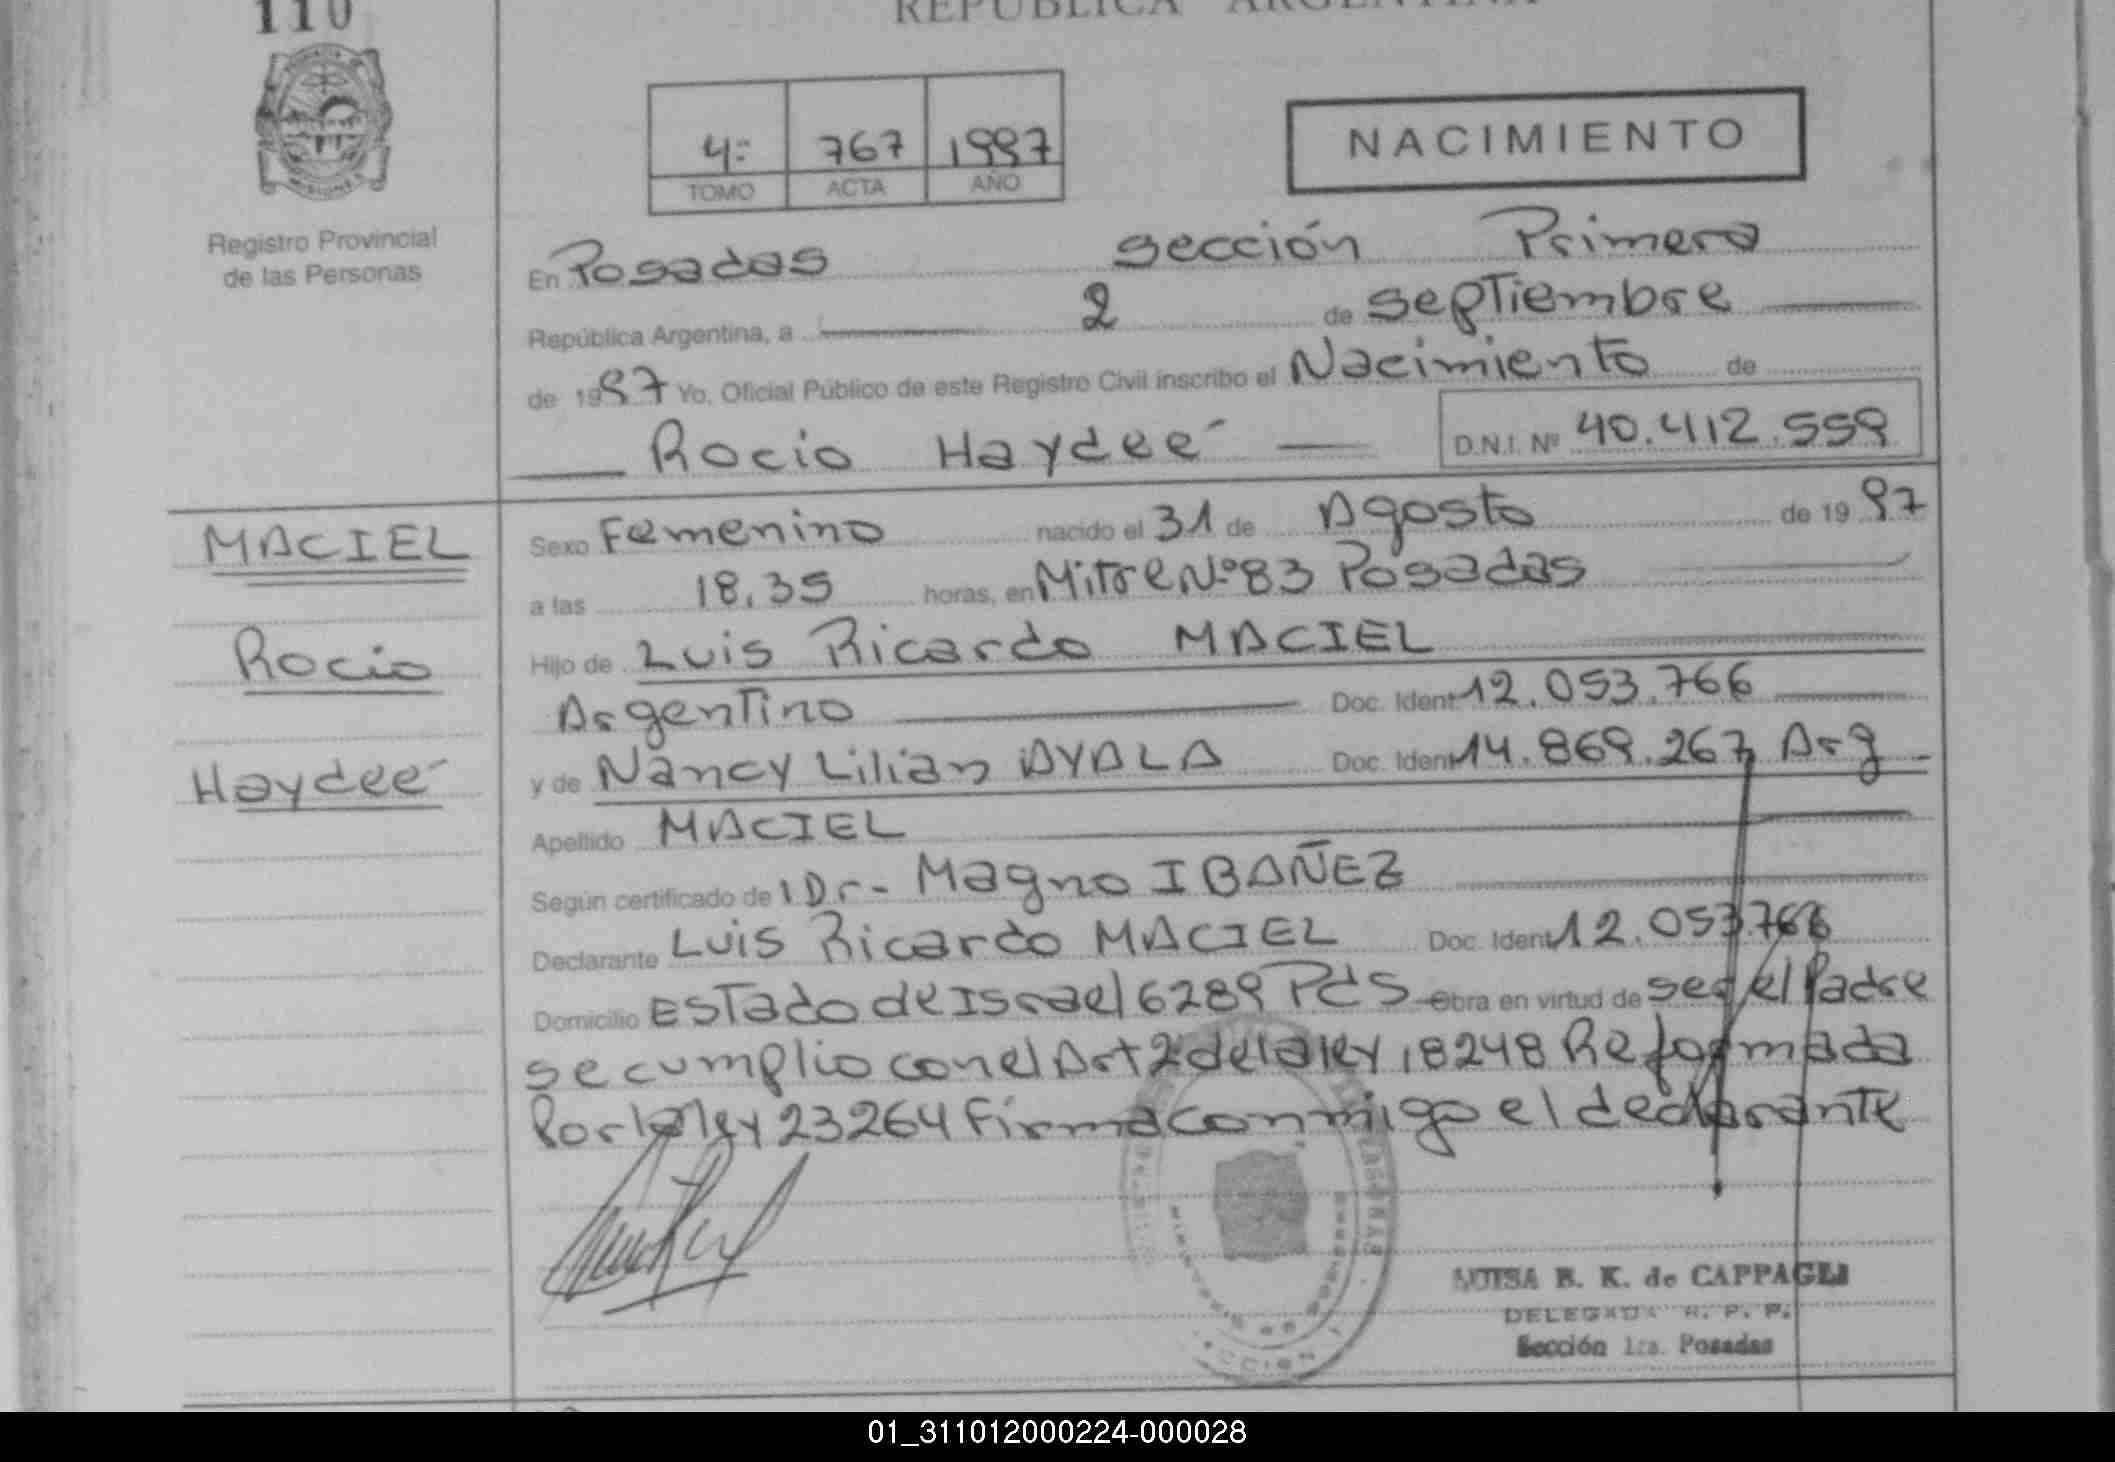 110
REPUBLICA ARGENTINA
4: 767 1997
TOMO ACTA AÑO
NACIMIENTO
MISIONES
Registro Provincial
de las Personas
En Posadas sección Primera
República Argentina, a 2 de septiembre
de 1997 Yo, Oficial Público de este Registro Civil inscribo el Nacimiento de
Rocio Haydeé D.N.I. Nº 40.412.559
MACIEL
Rocio
Haydeé
Sexo Femenino nacido el 31 de Agosto de 1997
a las 18.35 horas, en Mitre Nº 83 Posadas
Hijo de Luis Ricardo MACIEL
Argentino Doc. Ident. 12.053.766
y de Nancy Lilian AYALA Doc. Ident. 14.869.267 Arg
Apellido MACIEL
Según certificado de l Dr- Magno IBAÑEZ
Declarante Luis Ricardo MACIEL Doc. Ident. 12.053.766
Domicilio Estado de Israel 6289 Pds Obra en virtud de ser el Padre
se cumplio con el Art 2 de la ley 18248 Reformada
Por la ley 23264 Firma conmigo el declarante
LUISA B. K. de CAPPAGLI
DELEGADA R. P. P.
Sección 1ra. Posadas
01_311012000224-000028